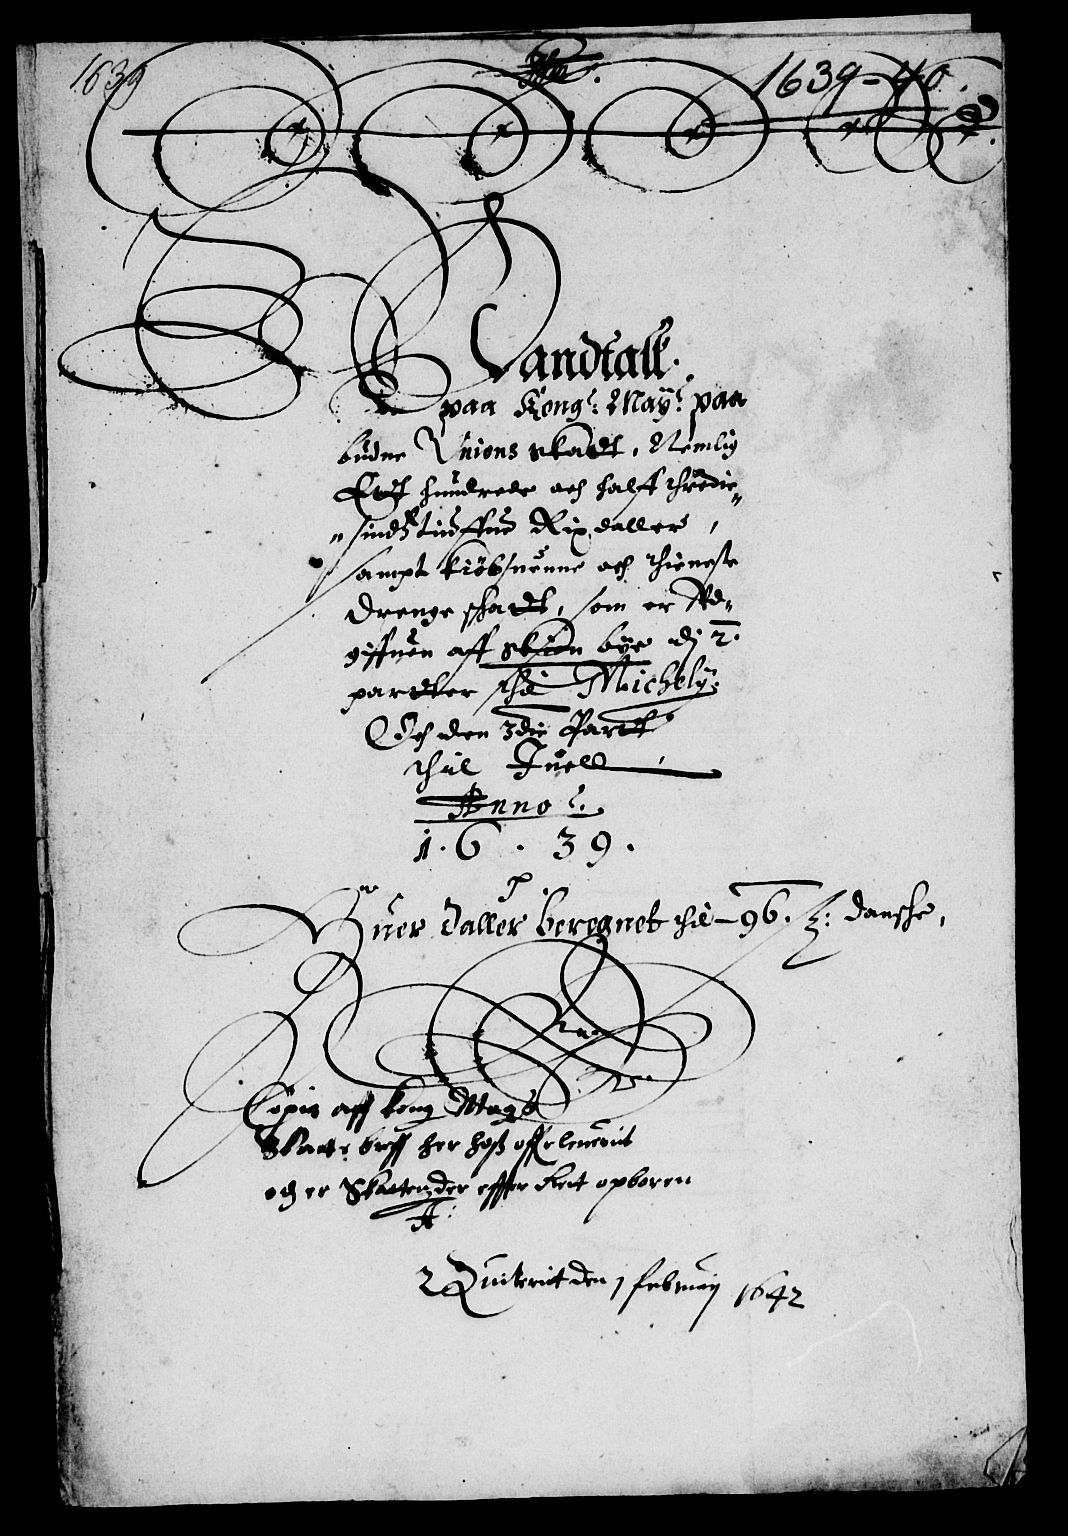 1639
1639-40.
Mandtall.
paa Kong: May: paa
budne Unions skadt, Nemlig
Ett hundrede och halff thredie
sinds tiuffue Rix daller,
sampt kiøbsuenne och thieneste
drenge skadt, som er Ad-
giffuen aff Skien bÿe di 2.
partter thil Michelÿ:
Och den 3die Partt
thil Juell
Anno
1.6.39.
Huer daller beregnet thil 96. ß: danske,
Copia aff kong May:
Skatte breff her hoß offuerleuerit
och er Skatten der effter Reit opboren
2 Quiterit den 1 februarij 1642